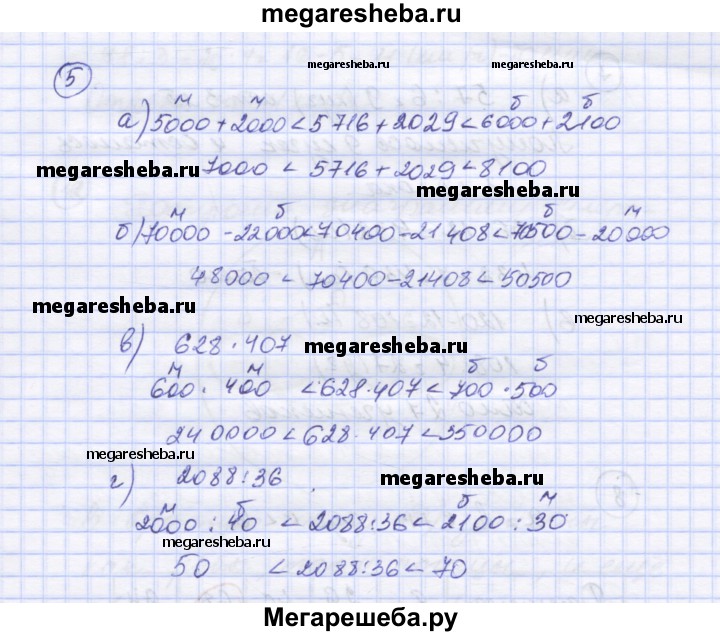 megaresheba.ru
5
megaresheba.ru megaresheba.ru
м м б б
а) 5000 + 2000 < 5716 + 2029 < 6000 + 2100
megaresheba.ru 7000 < 5716 + 2029 < 8100
megaresheba.ru
м б б м
б) 70000 - 22000 < 70400 - 21408 < 70500 - 20000
48000 < 70400 - 21408 < 50500
megaresheba.ru megaresheba.ru
в) 628 · 407 megaresheba.ru
м м б б
600 · 400 < 628 · 407 < 700 · 500
240000 < 628 · 407 < 350000
megaresheba.ru
г) 2088 : 36 megaresheba.ru
м б б м
2000 : 40 < 2088 : 36 < 2100 : 30
megaresheba.ru
50 < 2088 : 36 < 70
Мегарешеба.ру